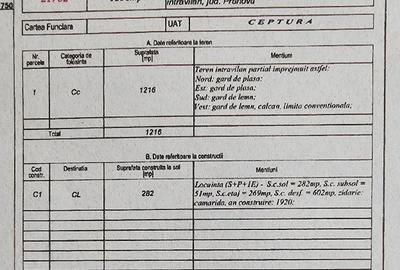 750
Intravilan, jud. Prahova
Cartea Funciara
UAT
CEPTURA
A. Date referitoare la teren
Nr. parcela
Categoria de folosinta
Suprafata [mp]
Mentiuni
1
Cc
1216
Teren intravilan partial imprejmuit astfel:
Nord: gard de plasa;
Est: gard de plasa;
Sud: gard de lemn;
Vest: gard de lemn, calcan, limita conventionala;
Total
1216
B. Date referitoare la constructii
Cod constr.
Destinatia
Suprafata construita la sol [mp]
Mentiuni
C1
CL
282
Locuinta (S+P+1E) - S.c.sol = 282mp, S.c. subsol =
51mp, S.c.etaj = 269mp, S.c. desf. = 602mp, zidarie:
camarida, an construire: 1920;